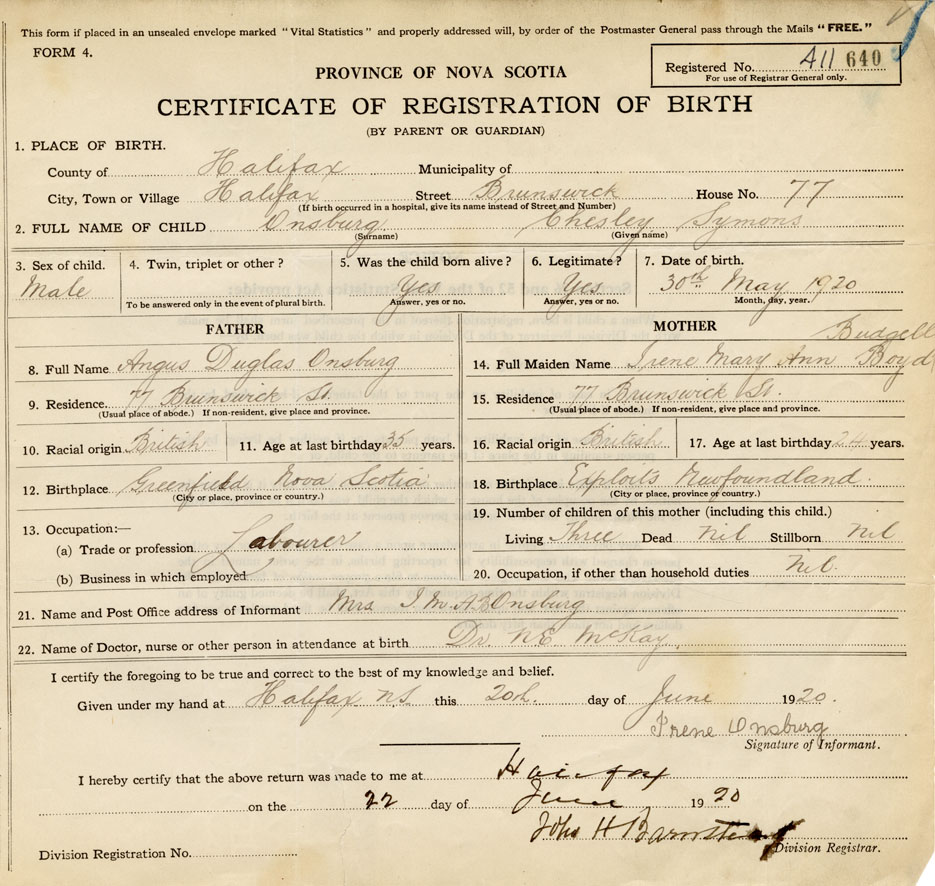 This form if placed in an unsealed envelope marked "Vital Statistics" and properly addressed will, by order of the Postmaster General pass through the Mails "FREE."
FORM 4.
Registered No. A11 640
For use of Registrar General only.
PROVINCE OF NOVA SCOTIA
CERTIFICATE OF REGISTRATION OF BIRTH
(BY PARENT OR GUARDIAN)
1. PLACE OF BIRTH.
County of Halifax Municipality of
City, Town or Village Halifax Street Brunswick House No. 77
(If birth occurred in a hospital, give its name instead of Street and Number)
2. FULL NAME OF CHILD Onsburg Chesley Symons
(Surname) (Given name)
3. Sex of child. 4. Twin, triplet or other? 5. Was the child born alive? 6. Legitimate? 7. Date of birth.
Male Yes Yes 30th May 1920
To be answered only in the event of plural birth. Answer, yes or no. Answer, yes or no. Month, day, year.
FATHER
8. Full Name Angus Duglas Onsburg
9. Residence. 77 Brunswick St.
(Usual place of abode.) If non-resident, give place and province.
10. Racial origin British 11. Age at last birthday 35 years.
12. Birthplace Greenfield Nova Scotia
(City or place, province or country.)
13. Occupation:—
(a) Trade or profession Labourer
(b) Business in which employed
MOTHER
Budgell
14. Full Maiden Name Irene Mary Ann Boyd
15. Residence 77 Brunswick St.
(Usual place of abode.) If non-resident, give place and province.
16. Racial origin British 17. Age at last birthday 24 years.
18. Birthplace Exploits Newfoundland.
(City or place, province or country.)
19. Number of children of this mother (including this child.)
Living Three Dead Nil Stillborn Nil
20. Occupation, if other than household duties Nil.
21. Name and Post Office address of Informant Mrs I. M. A. B Onsburg
22. Name of Doctor, nurse or other person in attendance at birth Dr N.E. McKay
I certify the foregoing to be true and correct to the best of my knowledge and belief.
Given under my hand at Halifax N.S. this day of June 1920.
Irene Onsburg
Signature of Informant.
I hereby certify that the above return was made to me at Halifax
on the 22 day of June 1920
John H Barnstead
Division Registrar.
Division Registration No.